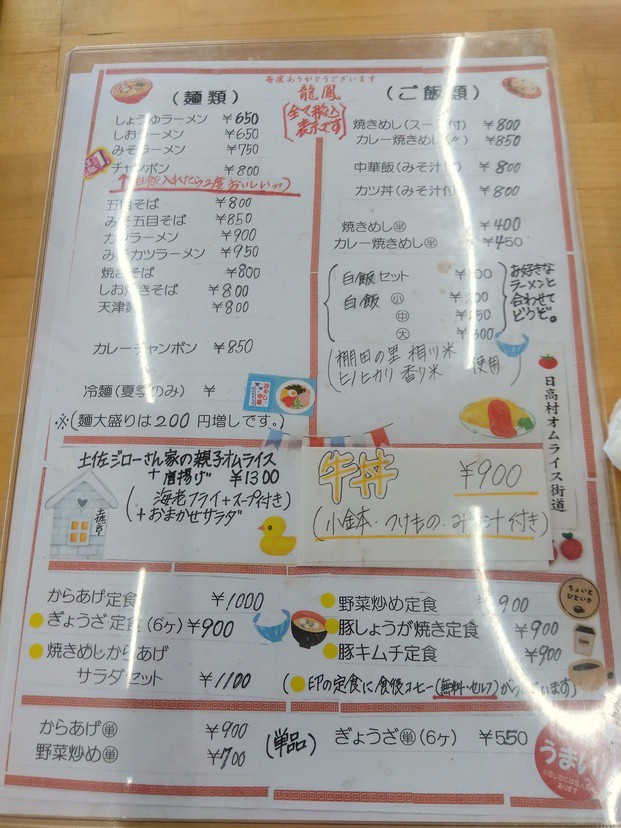 毎度ありがとうございます
龍鳳
全て税込
表示です
(麺類)
しょうゆラーメン ￥650
しおラーメン ￥650
みそラーメン ￥750
チャンポン ￥800
↑白飯入れたら2度おいしい
五目そば ￥800
みそ五目そば ￥850
カツラーメン ￥900
みそカツラーメン ￥950
焼きそば ￥800
しお焼きそば ￥800
天津麺 ￥800
カレーチャンポン ￥850
冷麺(夏季のみ) ￥
※(麺大盛りは200円増しです。)
(ご飯類)
焼きめし(スープ付) ￥800
カレー焼きめし(〃) ￥850
中華飯(みそ汁付) ￥800
カツ丼(みそ汁付) ￥800
焼きめし㊥ ￥400
カレー焼きめし ￥450
白飯セット
白飯 小
中
大
お好きな
ラーメンと
合わせて
どうぞ。
(棚田の里 相川米
ヒノヒカリ 香り米 使用)
日高村オムライス街道
土佐ジローさん家の親子オムライス
+唐揚げ ￥1300
(海老フライ+スープ付き)
+おまかせサラダ
牛丼 ￥900
(小鉢・つけもの・みそ汁付き)
からあげ定食 ￥1000
ぎょうざ定食(6ヶ) ￥900
焼きめしからあげ
サラダセット ￥1100
野菜炒め定食 ￥900
豚しょうが焼き定食 ￥900
豚キムチ定食 ￥900
(●印の定食に食後コーヒー(無料・セルフ)がございます)
ちょいと
ひといき
からあげ(単) ￥900
野菜炒め(単) ￥700
(単品)
ぎょうざ(単)(6ヶ) ￥550
うまい